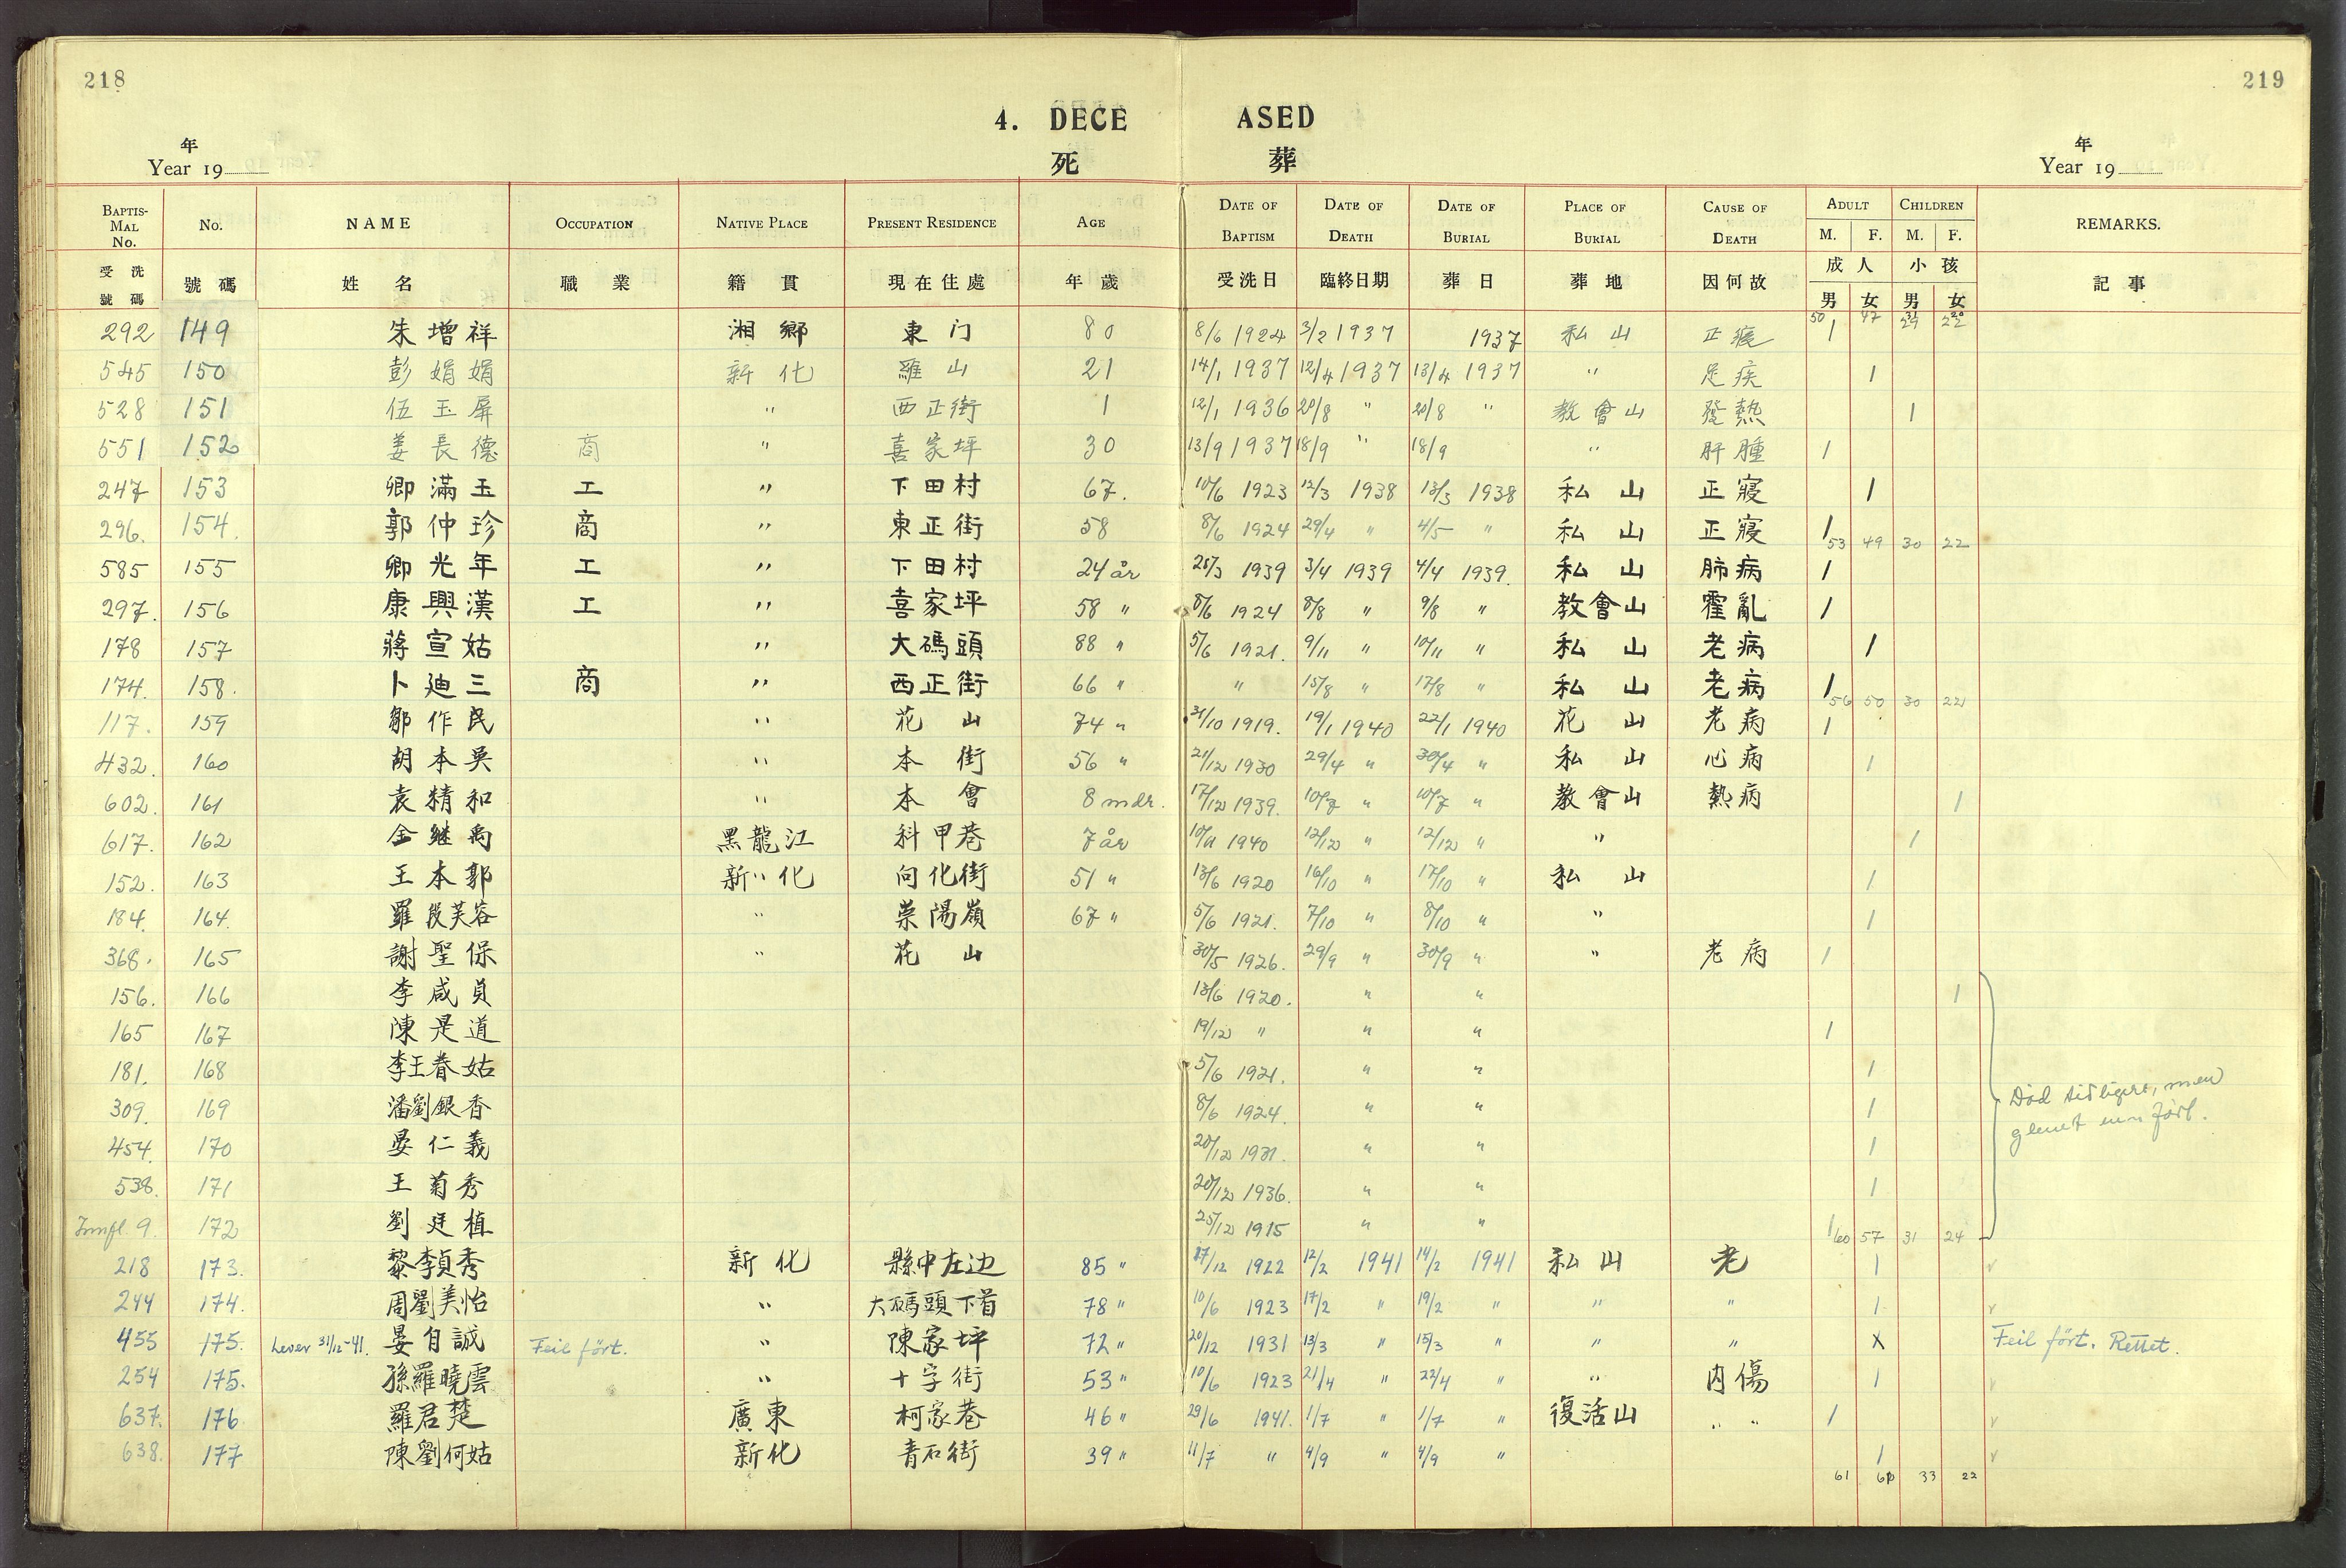 218
219
4. DECEASED
死 葬
年
Year 19
年
Year 19
BAPTISMAL No. No. NAME OCCUPATION NATIVE PLACE PRESENT RESIDENCE AGE DATE OF BAPTISM DATE OF DEATH DATE OF BURIAL PLACE OF BURIAL CAUSE OF DEATH ADULT M. F. CHILDREN M. F. REMARKS.
受洗號碼 號碼 姓名 職業 籍貫 現在住處 年歲 受洗日 臨終日期 葬日 葬地 因何故 成人 男 女 小孩 男 女 記事
50 47 31 29 20 22
292 149 朱增祥 湘鄉 東门 80 8/6 1924 3/2 1937 1937 私山 正寢 1
545 150 彭娟娟 新化 羅山 21 14/1 1937 12/4 1937 13/4 1937 " 足疾 1
528 151 伍玉屏 " 西正街 1 12/1 1936 20/8 " 20/8 " 教會山 發熱 1
551 152 姜長德 商 " 喜家坪 30 13/9 1937 18/9 " 18/9 " 肝腫 1
247 153 卿滿玉 工 " 下田村 67. 10/6 1923 12/3 1938 13/3 1938 私山 正寢 1
296. 154. 郭仲珍 商 " 東正街 58 8/6 1924 29/4 " 4/5 " 私山 正寢 1
53 49 30 22
585 155 卿光年 工 " 下田村 24 år 25/3 1939 3/4 1939 4/4 1939. 私山 肺病 1
297. 156 康興漢 工 " 喜家坪 58 " 8/6 1924 8/8 " 9/8 " 教會山 霍亂 1
178 157 蔣宣姑 " 大碼頭 88 " 5/6 1921. 9/11 " 10/11 " 私山 老病 1
174. 158. 卜廸三 商 " 西正街 66 " " 15/8 " 17/8 " 私山 老病 1
56 50 30 22
117. 159 鄒作民 " 花山 74 " 31/10 1919. 19/1 1940 22/1 1940 花山 老病 1
432. 160 胡本吳 " 本街 56 " 21/12 1930 29/4 " 30/4 " 私山 心病 1
602. 161 袁精和 " 本會 8 mdr. 17/12 1939. 10/7 " 10/7 " 教會山 熱病 1
617. 162 金継禹 黑龍江 科甲巷 7 år 10/11 1940 12/12 " 12/12 " " 1
152. 163 王本郭 新化 向化街 51 " 13/6 1920 16/10 " 17/10 " 私山 1
184. 164. 羅段芙容 " 荣陽嶺 67 " 5/6 1921. 7/10 " 8/10 " " 1
368. 165 謝聖保 " 花山 30/5 1926. 29/9 " 30/9 " " 老病 1
156. 166 李咸貞 13/6 1920. " " 1
165 167 陳是道 19/12 " " " 1
181. 168 李王春姑 5/6 1921. " " 1
309. 169 潘劉銀香 8/6 1924. " " 1
Död tidligere, men
glemt förl.
454. 170 晏仁義 20/12 1931. " " 1
538. 171 王菊秀 20/12 1936. " " 1
Innfl. 9. 172 劉廷植 25/12 1915 " " 1
60 57 31 24
218 173. 黎李貞秀 新化 縣中左边 85 " 17/12 1922 12/2 1941 14/2 1941 私山 老 1
244 174. 周劉美怡 " 大碼頭下首 78 " 10/6 1923 17/2 " 19/2 " " " 1
455 175. Lever 31/12-41. 晏自誠 Feil fört. " 陳家坪 72 " 20/12 1931 13/3 " 15/3 " " " X Feil fört. Rettet.
254 175. 孫羅曉雲 " 十字街 53 " 10/6 1923 21/4 " 22/4 " " 内傷 1
637. 176 羅君楚 廣東 柯家巷 46 " 29/6 1941. 1/7 " 1/7 " 復活山 " 1
638. 177 陳劉何姑 新化 青石街 39 " 11/7 " 4/9 " 4/9 " 1
61 60 33 22